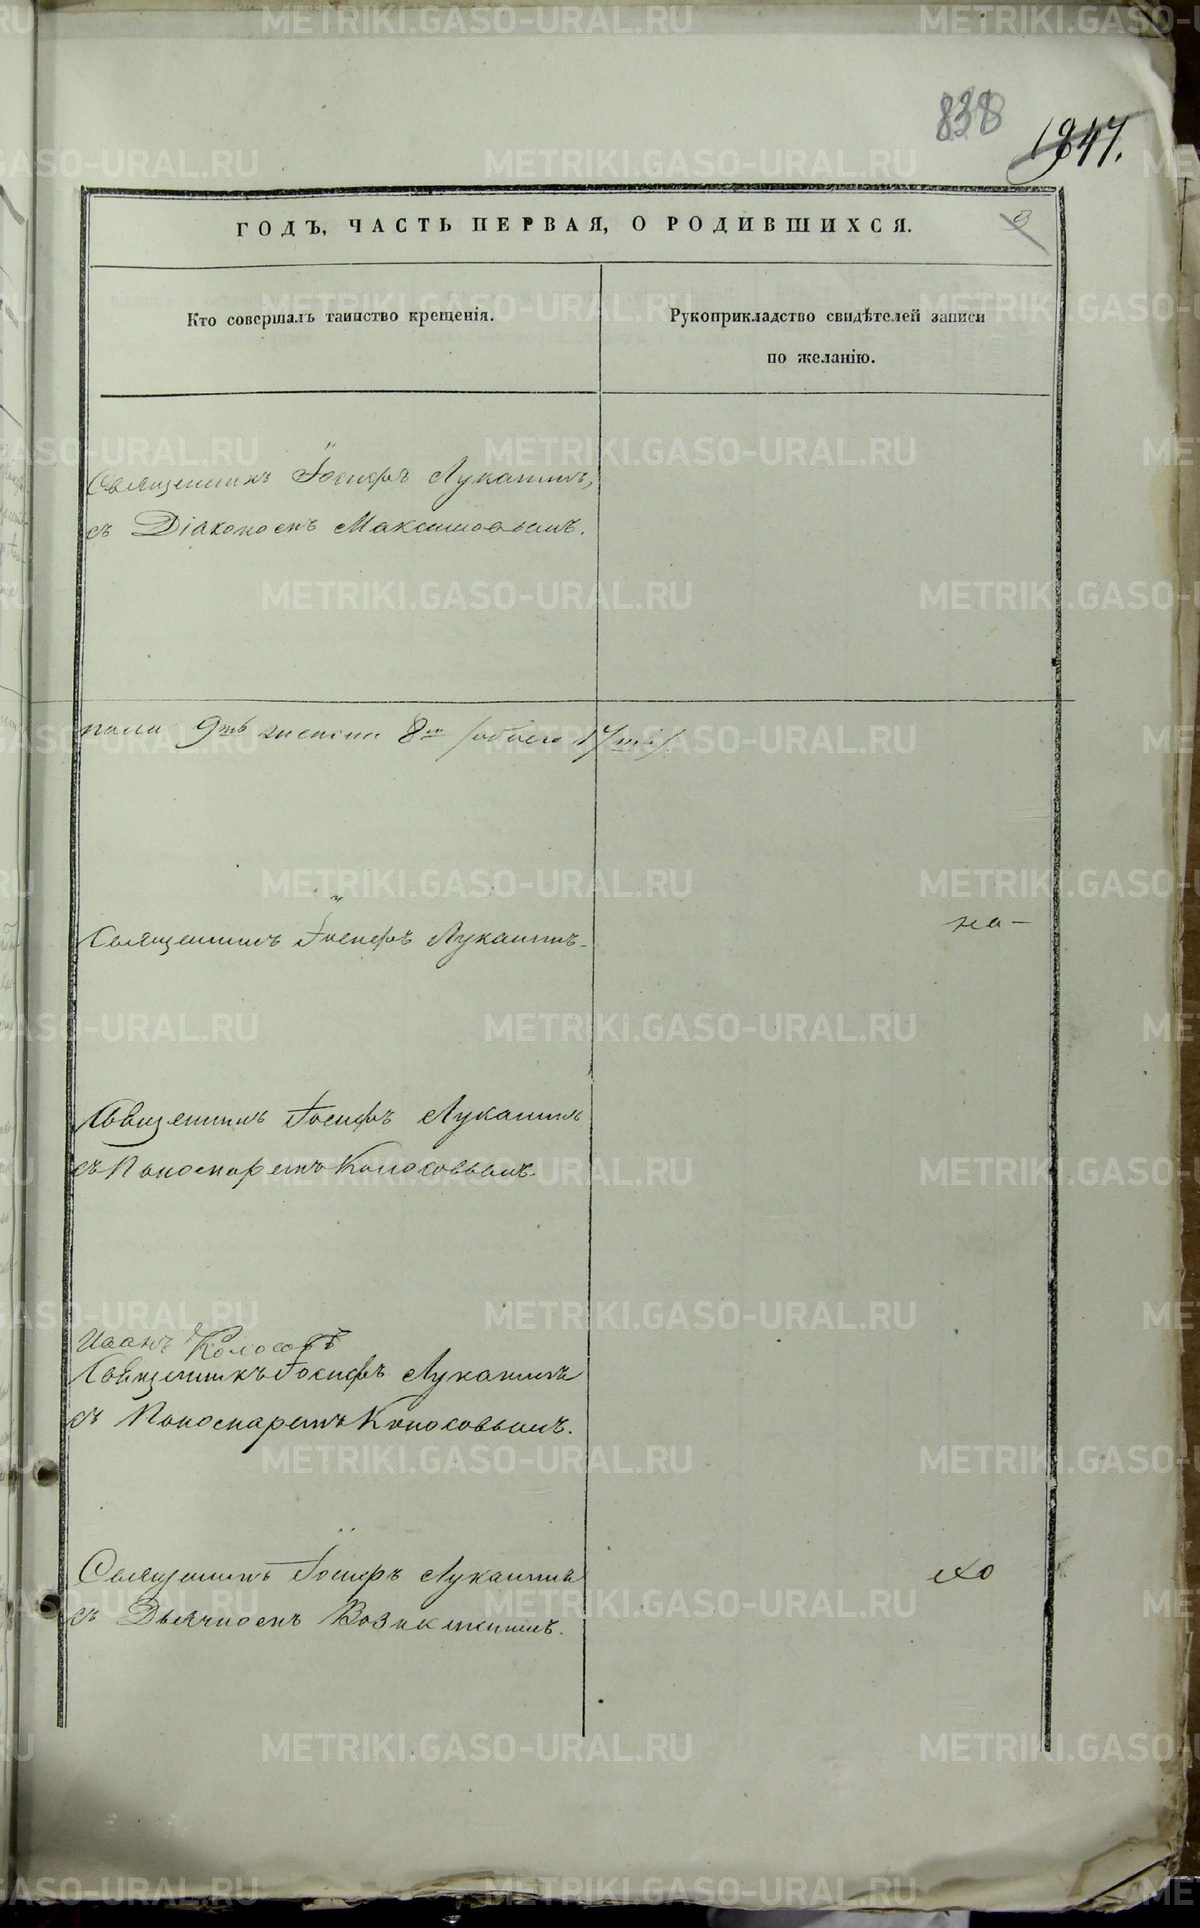 838
1847.
ГОДЪ, ЧАСТЬ ПЕРВАЯ, О РОДИВШИХСЯ.
Кто совершалъ таинство крещенія.
Рукоприкладство свидѣтелей записи
по желанію.
Священникъ Іосифъ Луканинъ,
съ Діакономъ Максимовымъ.
пола 9ть женска 8м /обоего 17ть/.
Священникъ Іосифъ Луканинъ.
на-
Священникъ Іосифъ Луканинъ
съ Пономаремъ Колосовымъ.
Иванъ Колосовъ
Священникъ Іосифъ Луканинъ
съ Пономаремъ Колосовымъ.
Священникъ Іосифъ Луканинъ
съ Дьячкомъ
METRIKI.GASO-URAL.RU